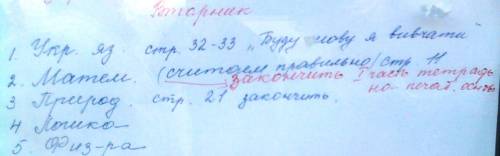 Вторник
1. Укр. яз. стр. 32-33 „Буду мову я вивчати"
2. Матем. (считаем правильно/стр. 11
закончить I часть тетрадь
на печат. основе
3 Природ. стр. 21 закончить.
4 Логика
5 Физ-ра